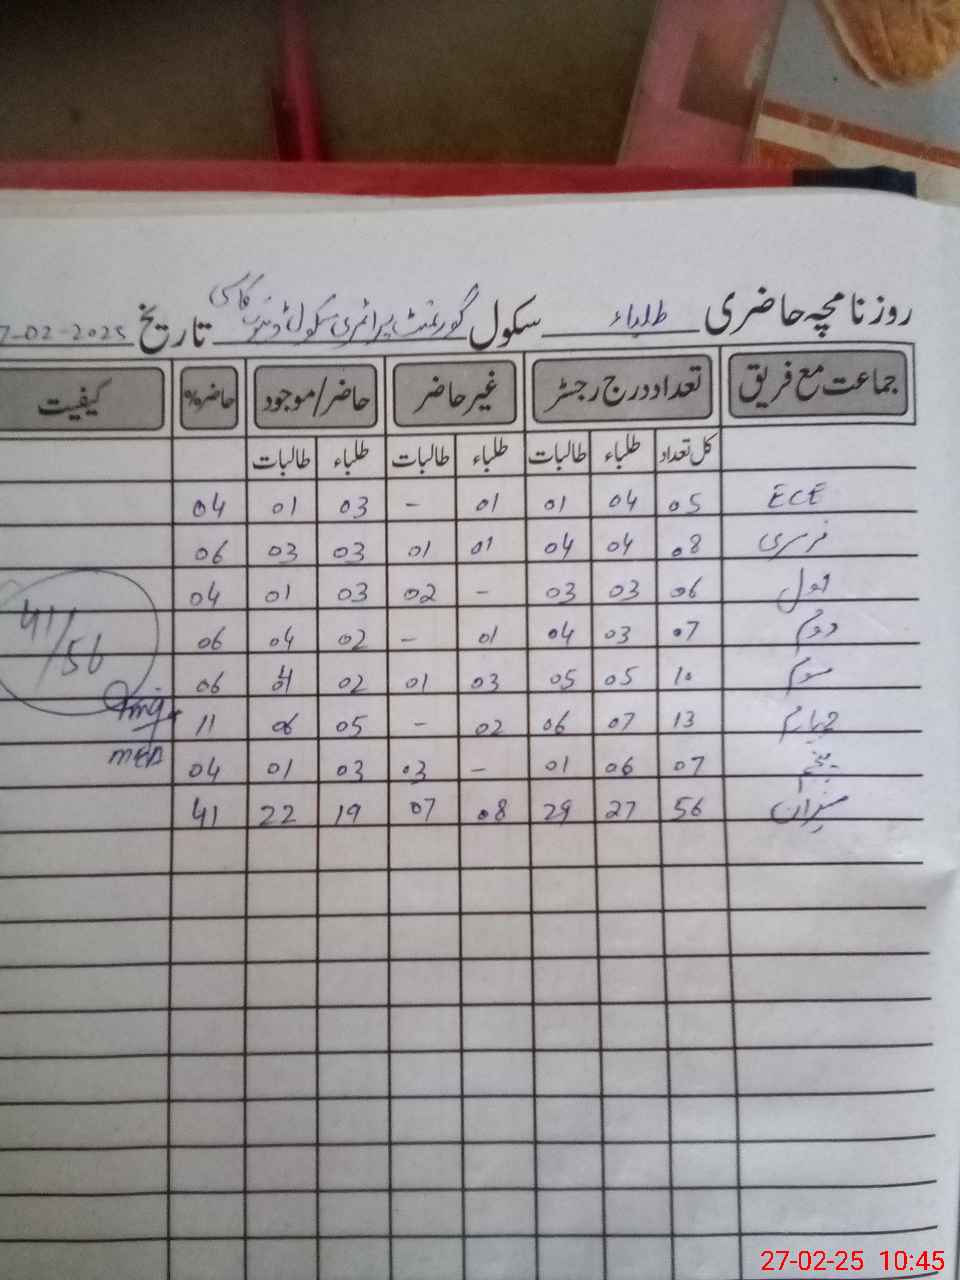 روزنامچہ حاضری طلباء سکول گورنمنٹ پرائمری سکول تاریخ 7-02-2025
جماعت مع فریق تعداد درج رجسٹر غیر حاضر حاضر/موجود حاضر% کیفیت
کل تعداد طلباء طالبات طلباء طالبات طلباء طالبات
ECE 05 04 01 01 - 03 01 04
نرسری 08 04 04 01 01 03 03 06
اول 06 03 03 - 02 03 01 04
دوم 07 03 04 01 - 02 04 06
سوم 10 05 05 03 01 02 06
چہارم 13 07 06 02 - 05 06 11
پنجم 07 06 01 - 03 03 01 04
میزان 56 27 29 08 07 19 22 41
41/56
MEA
27-02-25 10:45